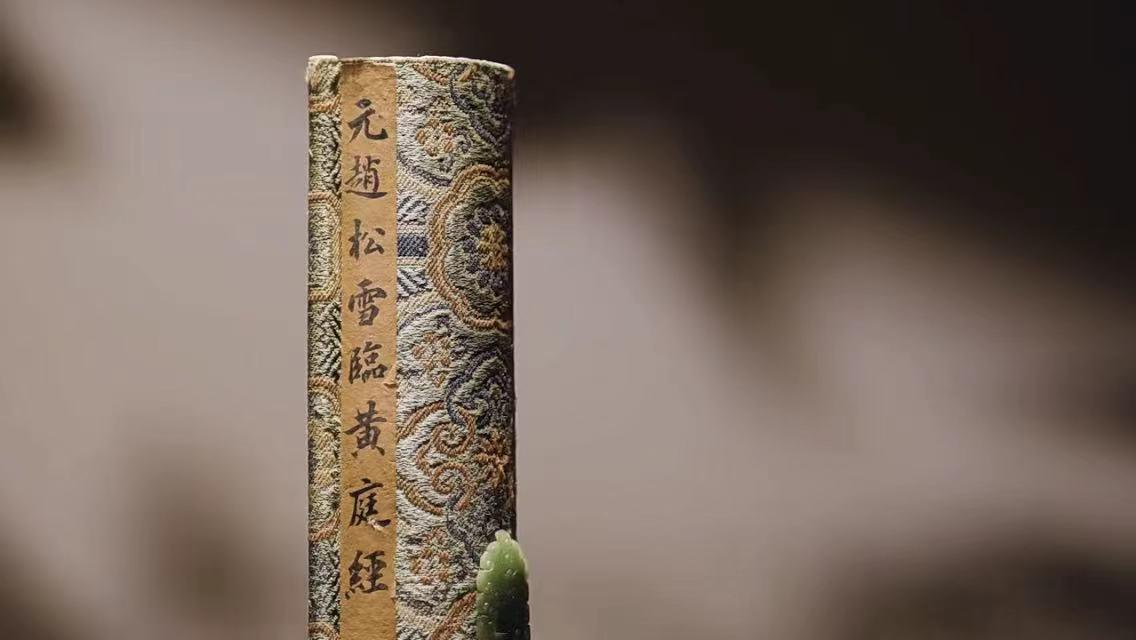 元趙松雪臨黄庭經